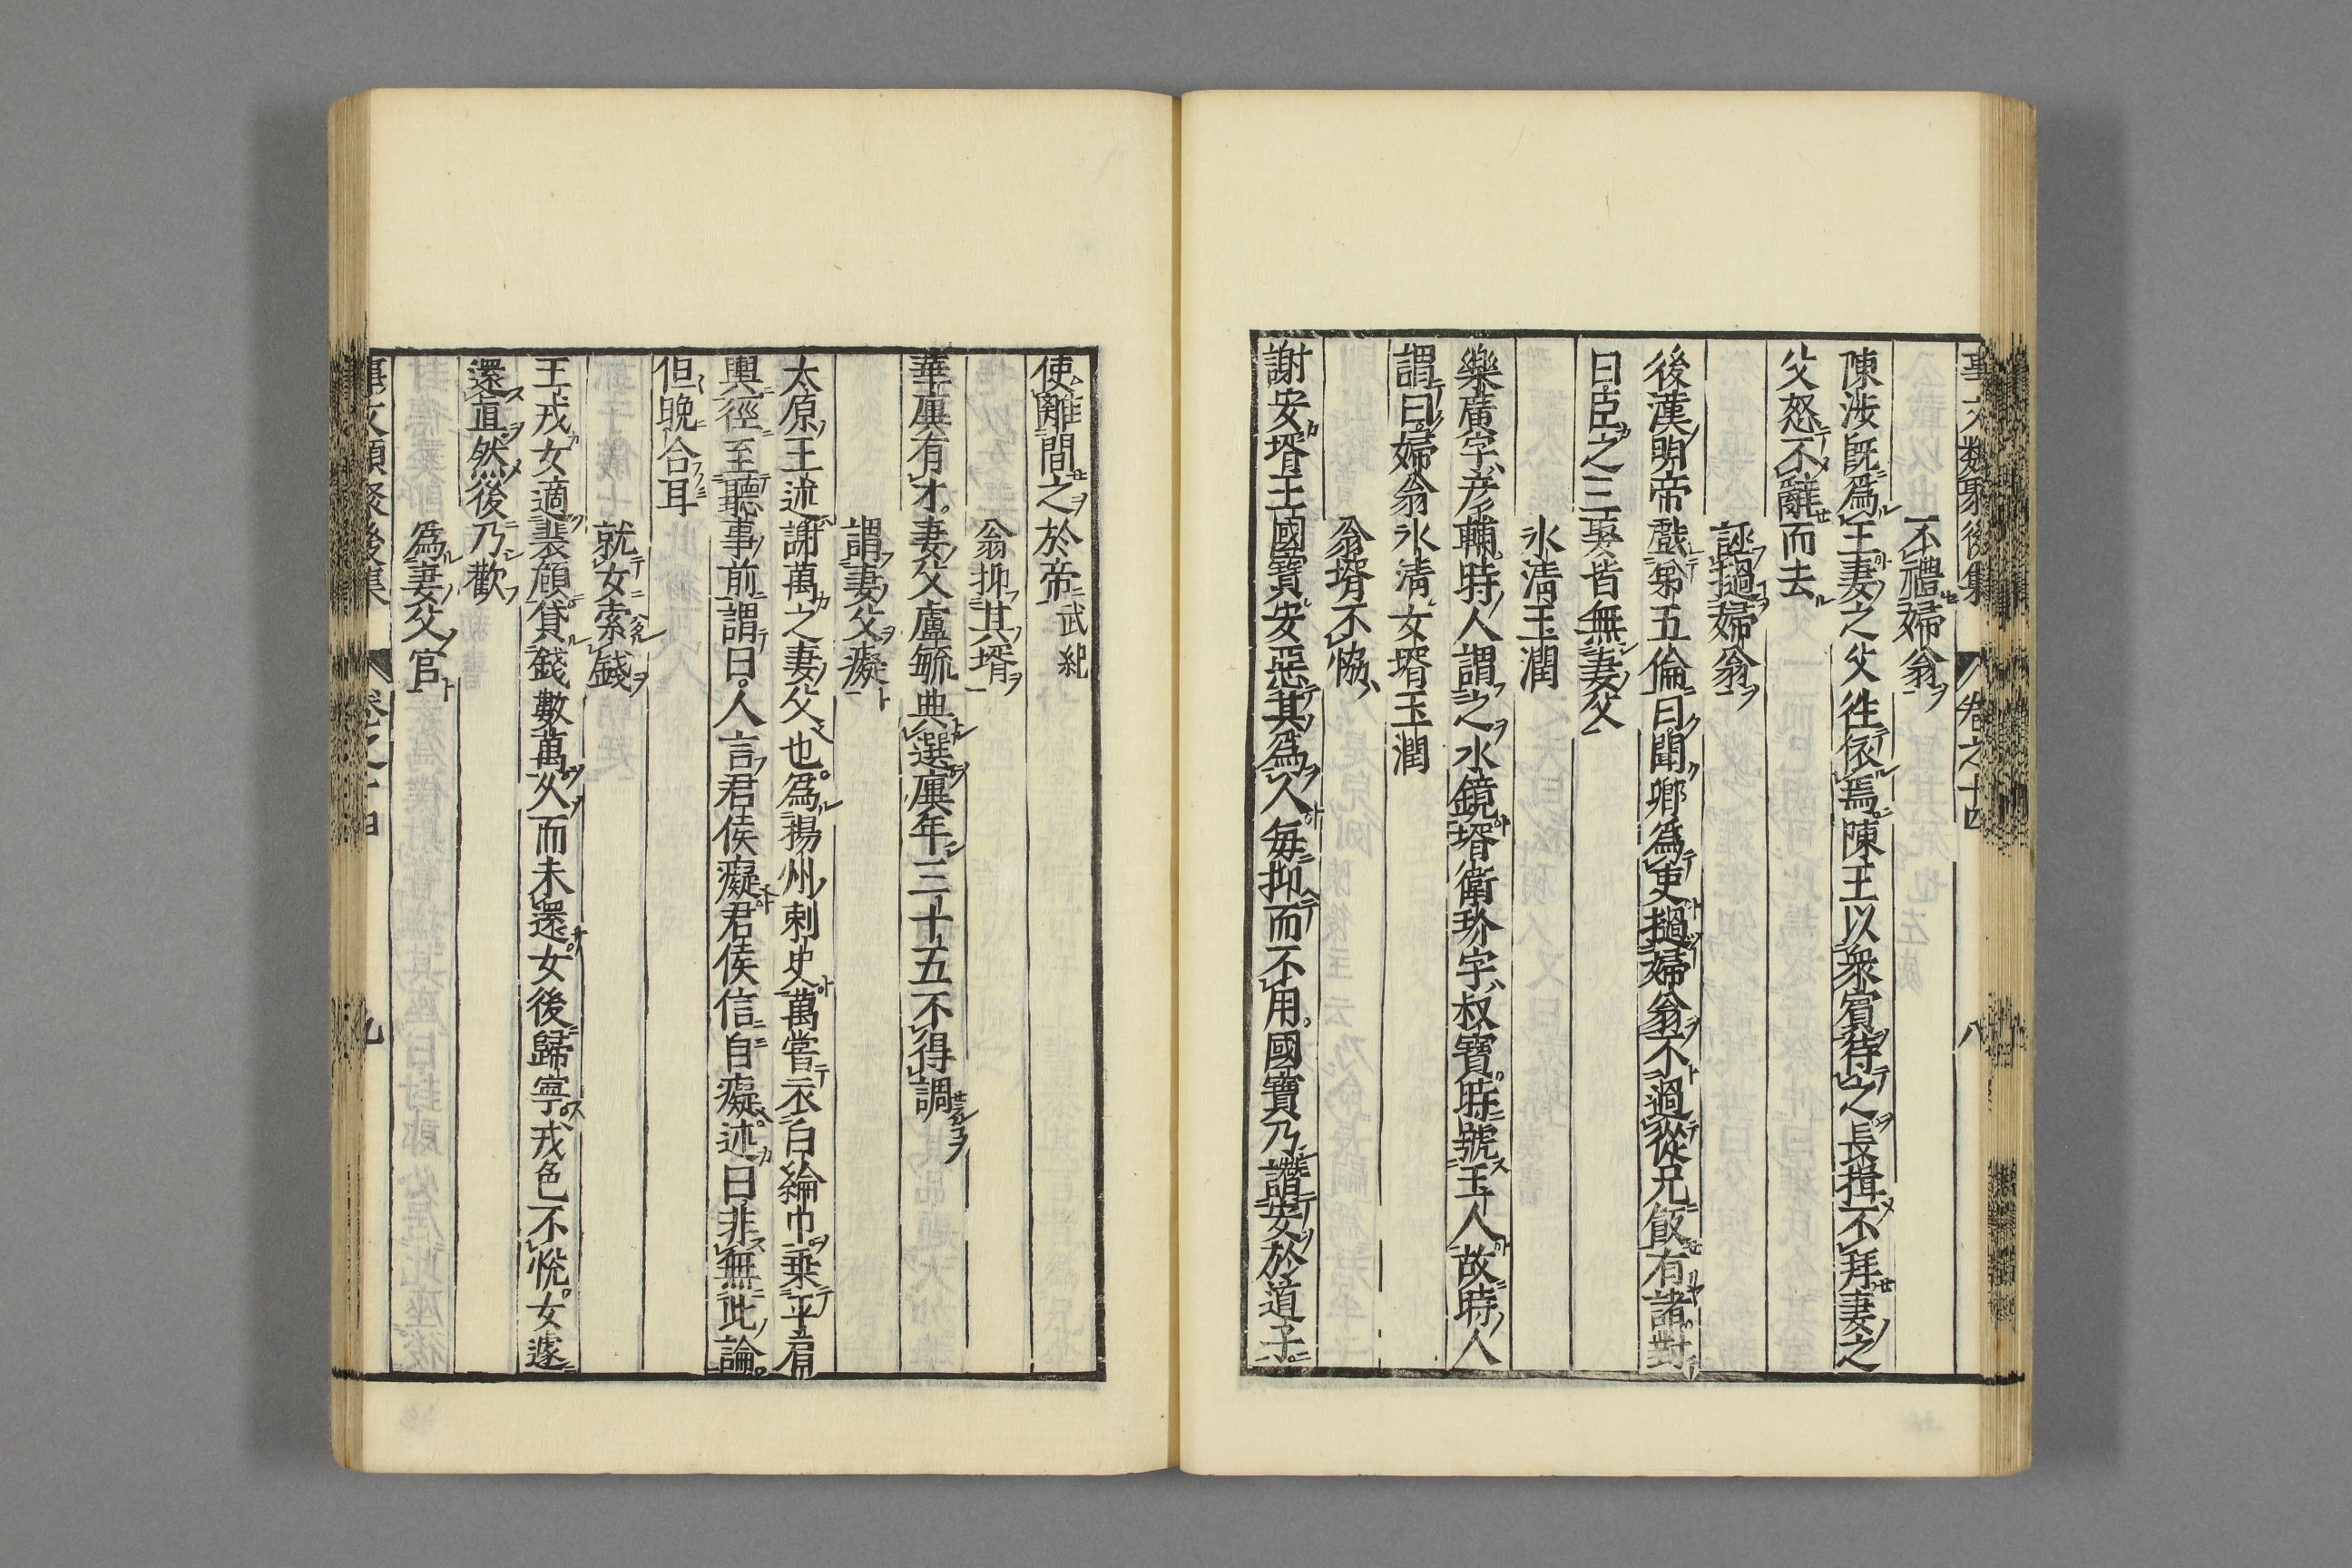 事文類聚後集 卷之十四 八
不禮婦翁
陳涉既爲王妻之父徃依焉陳王以衆賔待之長揖不拜妻之
父怒不辭而去
誣撾婦翁
後漢明帝戲第五倫曰聞卿爲吏撾婦翁不過從兄飯有諸對
曰臣之三娶皆無妻父
氷清玉潤
樂廣字彦輔時人謂之水鏡壻衛玠字叔寶時號玉人故時人
謂曰婦翁氷清女壻玉潤
翁壻不恊
謝安壻王國寶安惡其爲人毎抑而不用國寶乃譖安於道子
使離間之於帝武紀
翁抑其壻
華廙有才妻父盧毓典選廙年三十五不得調
謂妻父癡
太原王述謝萬之妻父也爲揚州刺史萬嘗衣白綸巾乗平肩
輿徑至聽事前謂曰人言君侯癡君侯信自癡述曰非無此論
但晩合耳
就女索錢
王戎女適裴頠貸錢數萬久而未還女後歸寧戎色不恱女遽
還直然後乃歡
爲妻父官
事文類聚後集 卷之十四 九